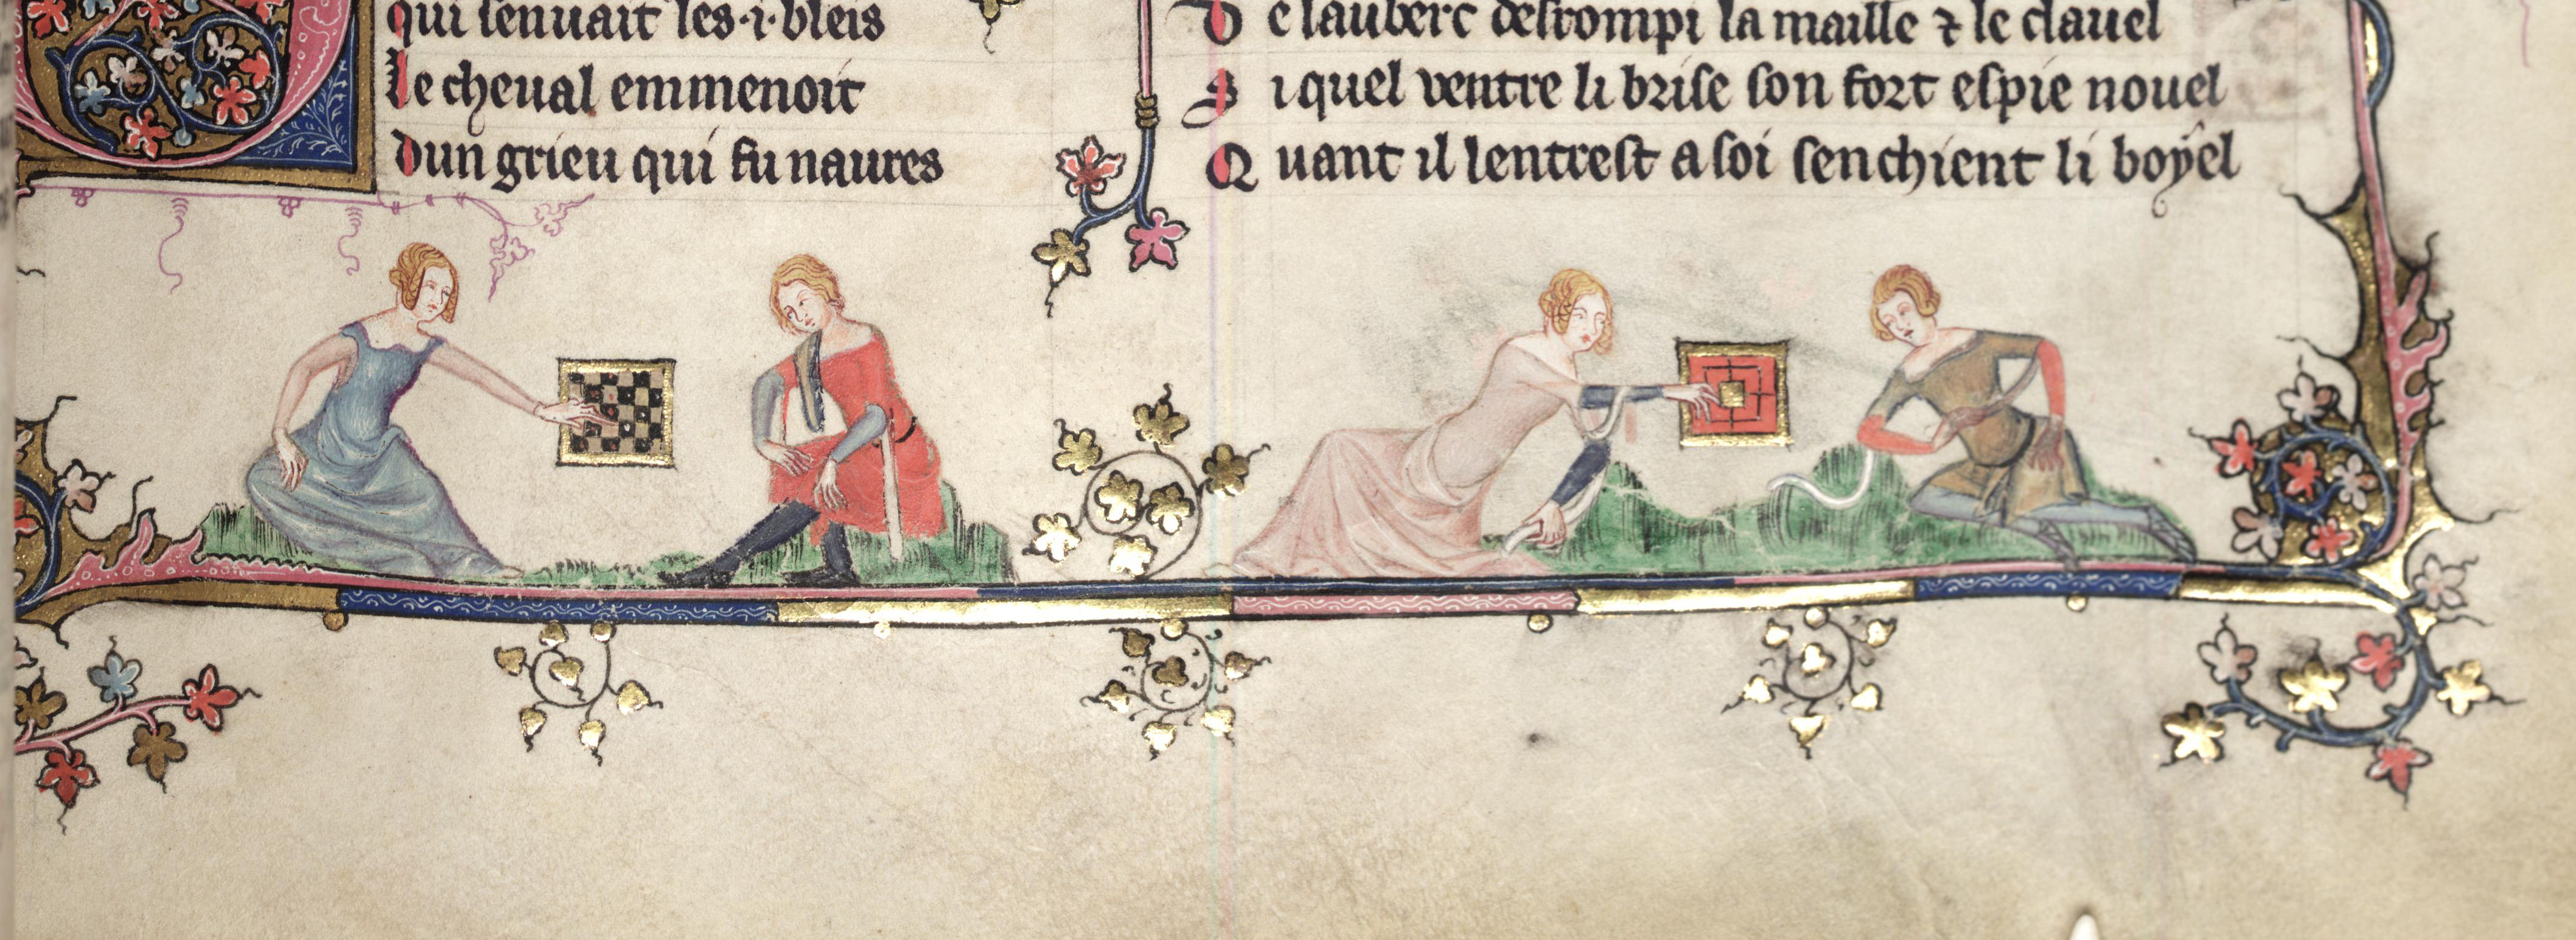 qui senuait les·i·bleis
le cheual emmenoit
dun grieu qui fu naures
De lauberc desrompi la maille ⁊ le clauel
Si quel ventre li brise son fort espie nouel
Quant il lentrest a soi senchient li boyel